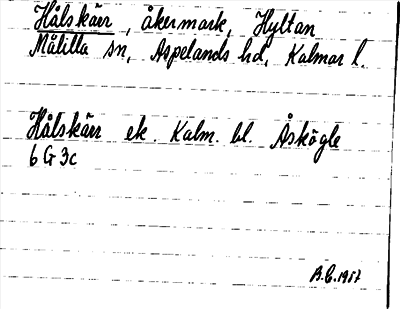 Hålskärr, åkermark, Hyltan
Målilla sn, Aspelands hd, Kalmar l.
Hålskärr ek. Kalm. bl. Åskögle
6 G 3c
B.C. 1957